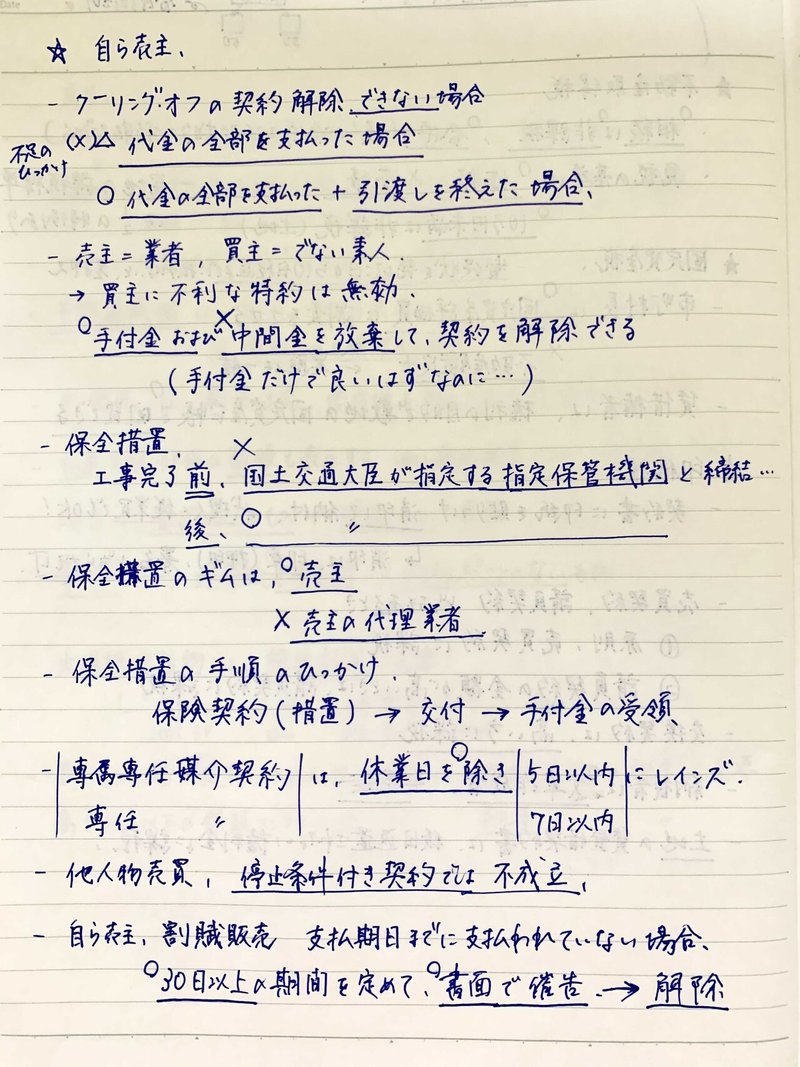 ☆ 自ら売主、
- クーリング・オフの契約解除できない場合
不足のひっかけ
(×)△ 代金の全部を支払った場合
○ 代金の全部を支払った + 引渡しを終えた場合、
- 売主=業者, 買主=でない素人.
→ 買主に不利な特約は無効.
○ 手付金および × 中間金を放棄して、契約を解除できる
(手付金だけで良いはずなのに…)
- 保全措置、
工事完了前、× 国土交通大臣が指定する指定保管機関と締結…
後、○ 〃
- 保全措置のギムは、○ 売主
× 売主の代理業者
- 保全措置の手順のひっかけ.
保険契約(措置) → 交付 → 手付金の受領
- 専属専任媒介契約 は、休業日を○除き 5日以内 にレインズ.
専任 〃 7日以内
- 他人物売買, 停止条件付き契約では不成立、
- 自ら売主、割賦販売 支払期日までに支払われていない場合、
○30日以上の期間を定めて、○書面で催告 → 解除